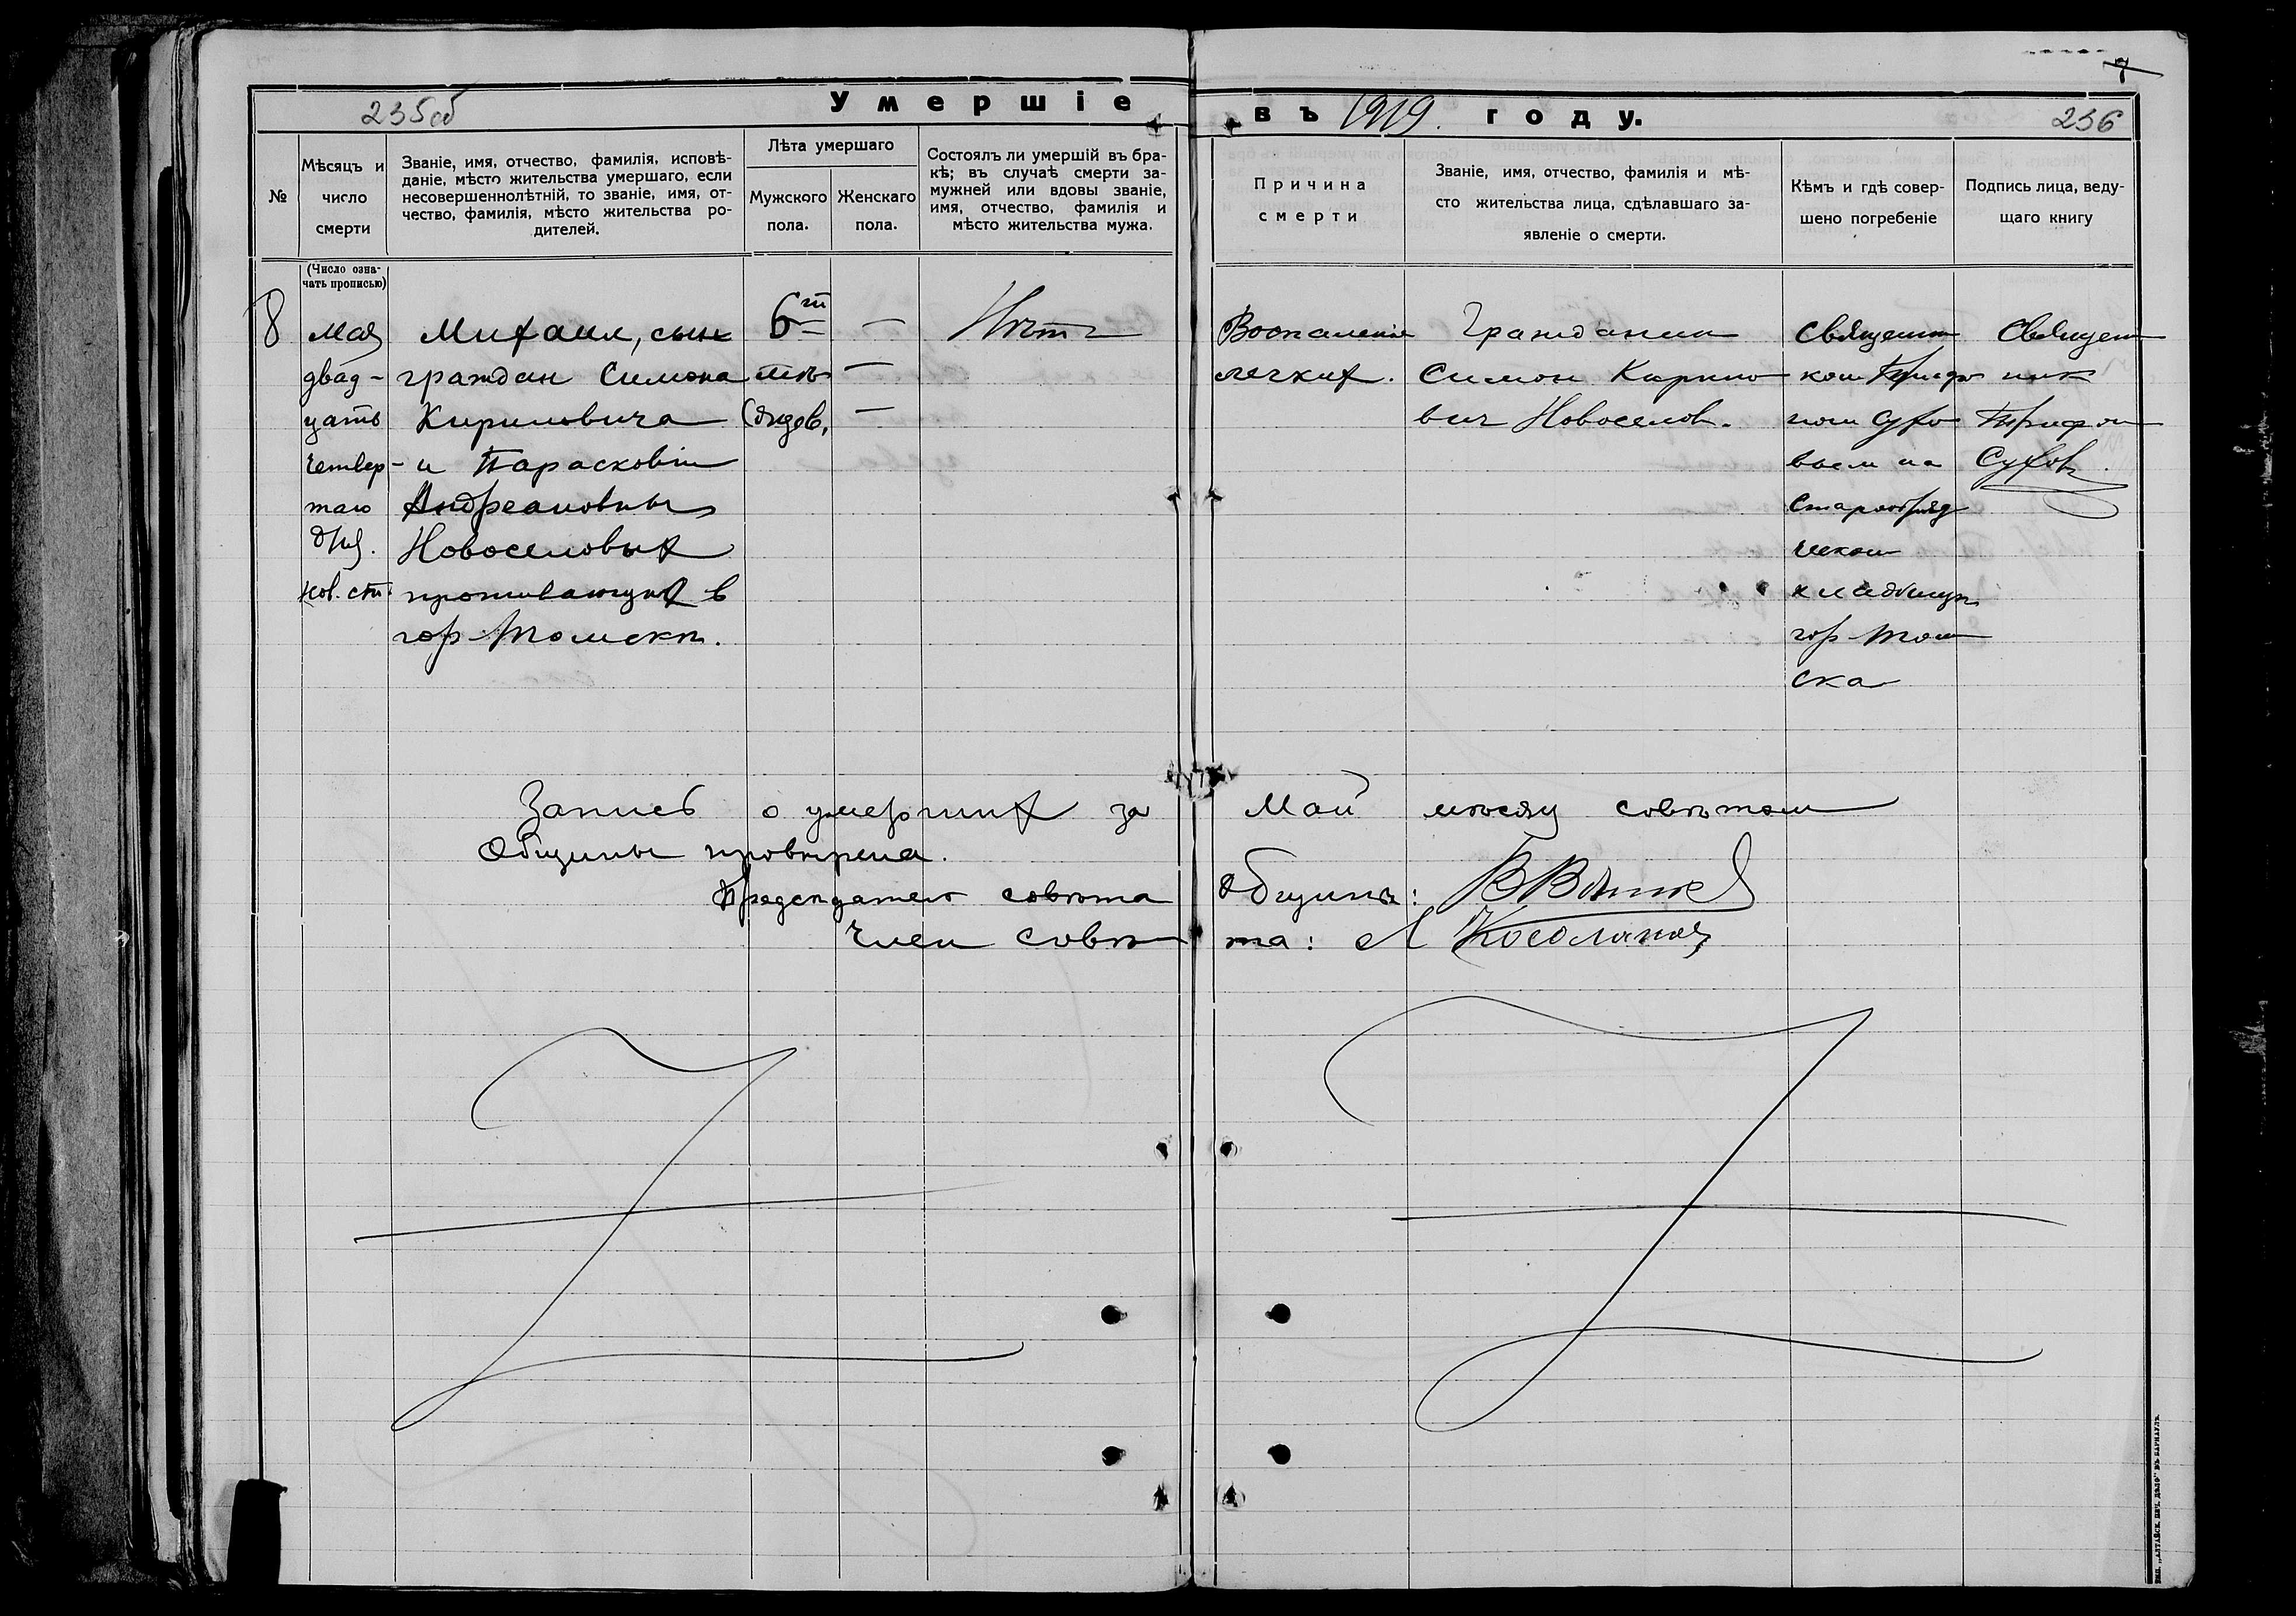 7
235об
236
Умершіе
въ 1919. году.
№
Мѣсяцъ и
число
смерти
Званіе, имя, отчество, фамилія, исповѣ-
даніе, мѣсто жительства умершаго, если
несовершеннолѣтній, то званіе, имя, от-
чество, фамилія, мѣсто жительства ро-
дителей.
Лѣта умершаго
Мужского
пола.
Женскаго
пола.
Состоялъ ли умершій въ бра-
кѣ; въ случаѣ смерти за-
мужней или вдовы званіе,
имя, отчество, фамилія и
мѣсто жительства мужа.
Причина
смерти
Званіе, имя, отчество, фамилія и мѣ-
сто жительства лица, сдѣлавшаго за-
явленіе о смерти.
Кѣмъ и гдѣ совер-
шено погребеніе
Подпись лица, веду-
щаго книгу
(Число озна-
чать прописью)
8
мая
двад-
цать
четвер-
таго
дня.
нов. ст.
Михаил, сын
граждан Симона
Кириловича
и Парасковіи
Андреановны
Новоселовых
проживающих в
гор Томскѣ.
6ти
—
—
—
Нѣтъ
Воспаленіе
легких.
Гражданин
Симон Кирило
вич Новоселов.
Священни
ком Трифо
ном Сухо
вым на
старообряд
ческом
кладбищѣ
гор Том
ска
Священ
ник
Трифон
Сухов.
Запись о умерших за Май мѣсяц совѣтом
Общины провѣрена.
Предсѣдатель совѣта Общины:
Член совѣ та:
Тип. „Алтайск. Печ. Дѣло“ въ Барнаулѣ.